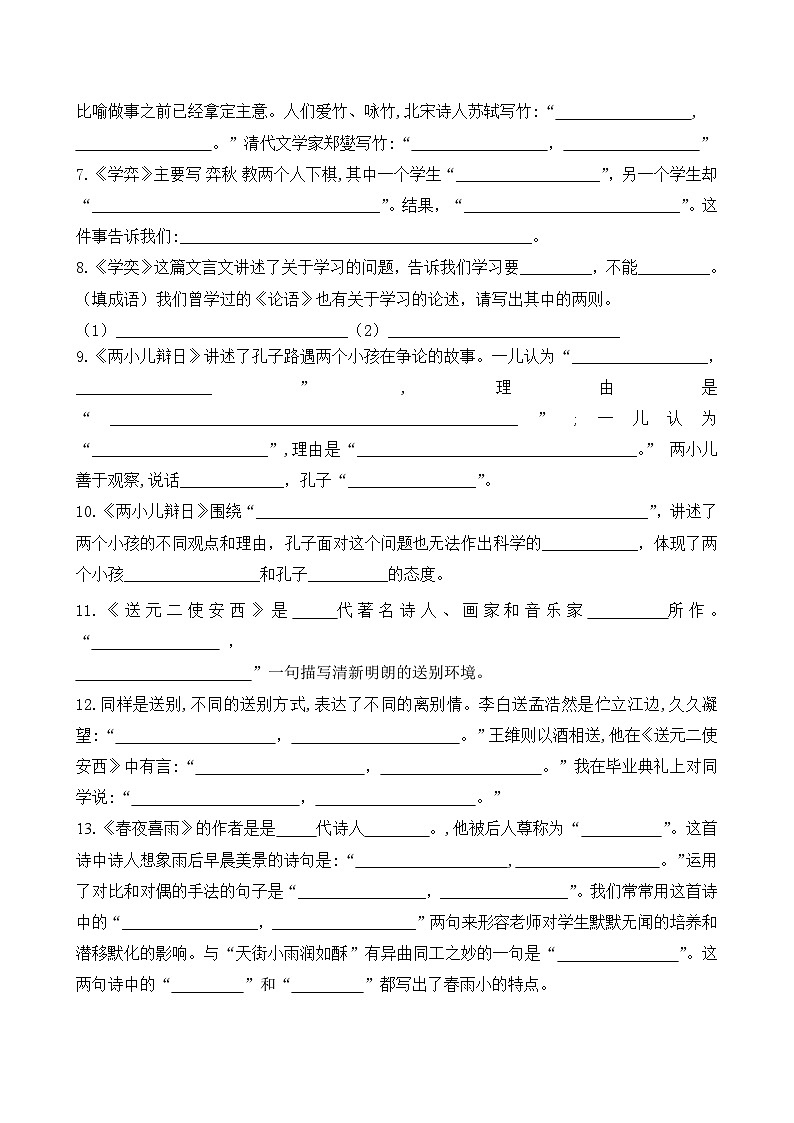 比喻做事之前已经拿定主意。人们爱竹、咏竹,北宋诗人苏轼写竹:“_________________,
_________________。”清代文学家郑燮写竹:“_________________，_________________”
7.《学弈》主要写 弈秋 教两个人下棋,其中一个学生“__________________”，另一个学生却
“____________________________________”。结果，“___________________________”。这
件事告诉我们:____________________________________________。
8.《学奕》这篇文言文讲述了关于学习的问题，告诉我们学习要_________，不能_________。
（填成语）我们曾学过的《论语》也有关于学习的论述，请写出其中的两则。
（1）_____________________________（2）_____________________________
9.《两小儿辩日》讲述了孔子路遇两个小孩在争论的故事。一儿认为“_________________，
_________________”,理由是
“___________________________________________________”;一儿认为
“______________________”,理由是“___________________________________。” 两小儿
善于观察,说话_____________，孔子“________________”。
10.《两小儿辩日》围绕“_________________________________________________”，讲述了
两个小孩的不同观点和理由，孔子面对这个问题也无法作出科学的____________，体现了两
个小孩_________________和孔子__________的态度。
11.《送元二使安西》是_____代著名诗人、画家和音乐家_________所作。
“________________，
______________________”一句描写清新明朗的送别环境。
12.同样是送别,不同的送别方式,表达了不同的离别情。李白送孟浩然是伫立江边,久久凝
望:“____________________，_____________________。”王维则以酒相送,他在《送元二使
安西》中有言:“_____________________，____________________。”我在毕业典礼上对同
学说:“_____________________，____________________。”
13.《春夜喜雨》的作者是是_____代诗人________。,他被后人尊称为“__________”。这首
诗中诗人想象雨后早晨美景的诗句是:“___________________,__________________。”运用
了对比和对偶的手法的句子是“________________，________________”。我们常常用这首诗
中的“_________________，__________________”两句来形容老师对学生默默无闻的培养和
潜移默化的影响。与“天街小雨润如酥”有异曲同工之妙的一句是“_______________”。这
两句诗中的“_________”和“_________”都写出了春雨小的特点。